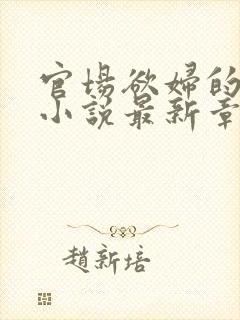 官場欲婦的
小說最新章
趙新培